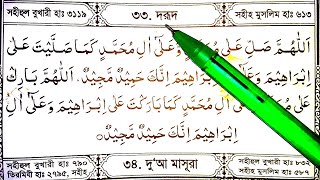 সহীহুল বুখারী হাঃ ৩১১৯ ৩৩. দরূদ সহীহ মুসলিম হাঃ ৬১৩
اَللّٰهُمَّ صَلِّ عَلٰى مُحَمَّدٍ وَعَلٰٓى اٰلِ مُحَمَّدٍ كَمَا صَلَّيْتَ عَلٰٓى
اِبْرَاهِيْمَ وَعَلٰٓى اِبْرَاهِيْمَ اِنَّكَ حَمِيْدٌ مَّجِيْدٌ. اَللّٰهُمَّ بَارِكْ
عَلٰى مُحَمَّدٍ كَمَا بَارَكْتَ عَلٰٓى اِبْرَاهِيْمَ وَعَلٰٓى اٰلِ
اِبْرَاهِيْمَ اِنَّكَ حَمِيْدٌ مَّجِيْدٌ.
সহীহুল বুখারী হাঃ ৭৯০ ৩৪. দু'আ মাসূরা সহীহুল বুখারী হাঃ ৮৩২
তিরমিযী হাঃ ২৭৯৫, সহীহ সহীহ মুসলিম হাঃ ৫৮৭